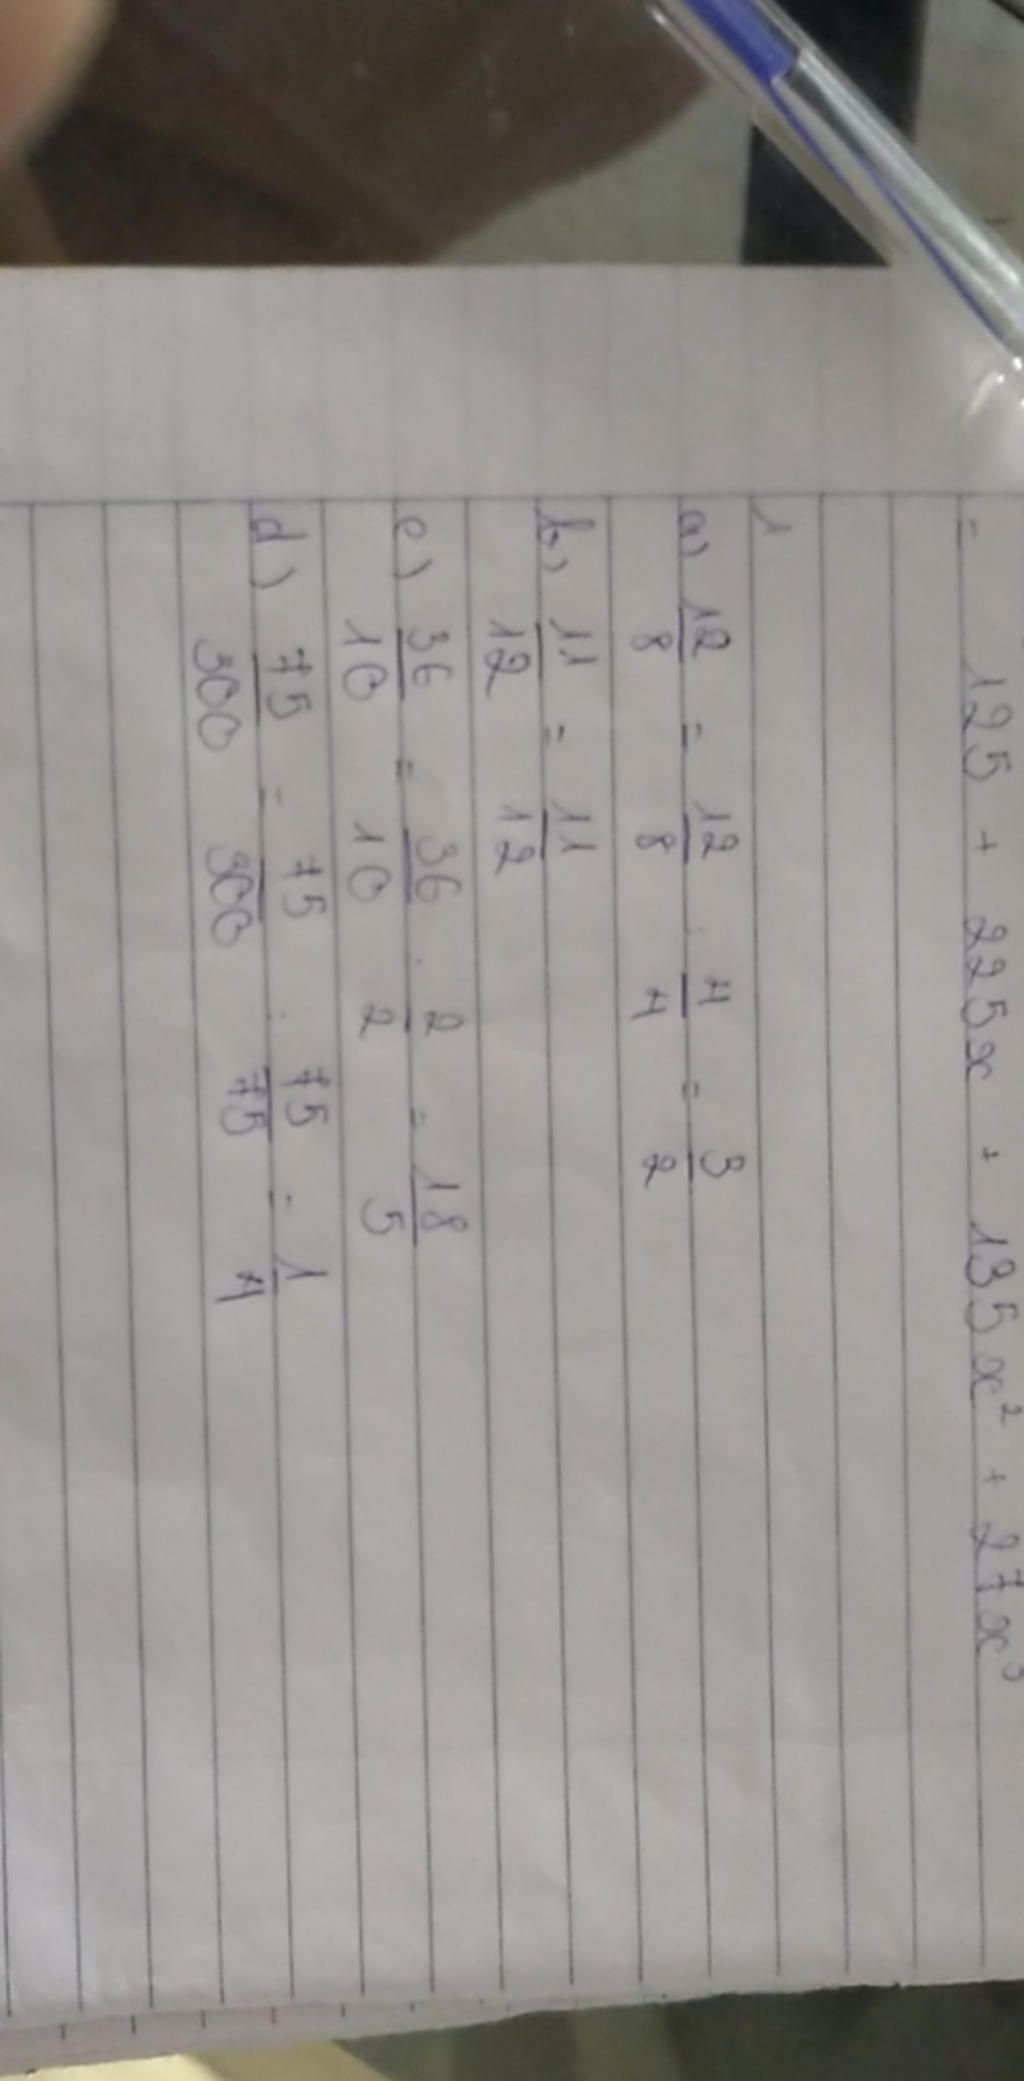 = 125 + 225x + 135x² + 27x³
1
a) 12/8 = 12/8 . 4/4 = 3/2
b) 11/12 = 11/12
c) 36/10 = 36/10 . 2/2 = 18/5
d) 75/300 = 75/300 . 75/75 = 1/4